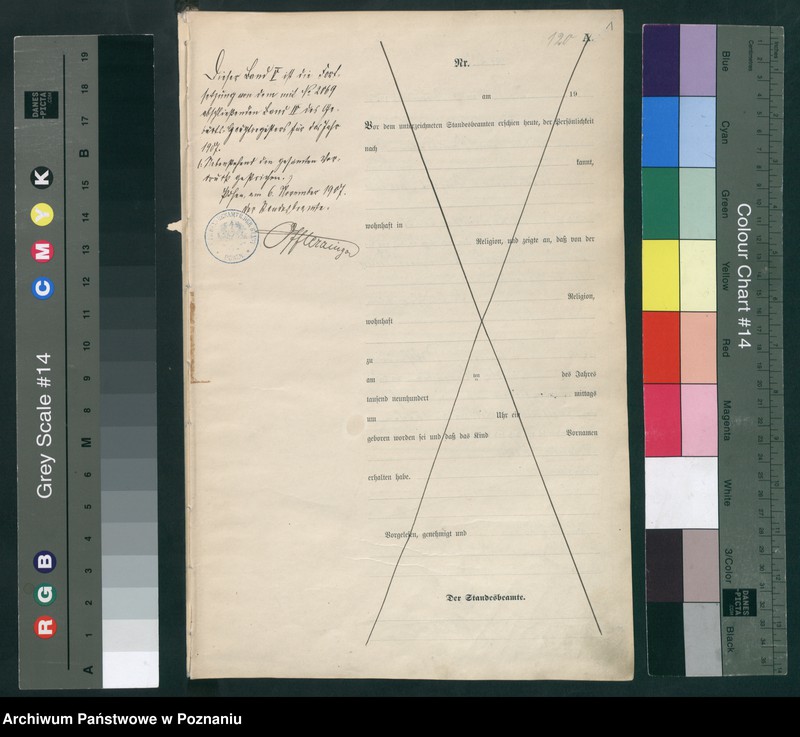 120
A.
1
Dieser Band IV ist die Fort-
setzung von dem mit № 2069
abschließenden Band III des Ge-
burts-Hauptregisters für das Jahr
1907.
Nebenstehend den gesamten Vor-
druck gestrichen.
Posen, am 6. November 1907.
Der Standesbeamte.
Nr.
am 19
Vor dem unterzeichneten Standesbeamten erschien heute, der Persönlichkeit
nach
kannt,
wohnhaft in
Religion, und zeigte an, daß von der
Religion,
wohnhaft
zu
am an des Jahres
tausend neunhundert mittags
um Uhr ein
geboren worden sei und daß das Kind Vornamen
erhalten habe.
Vorgelesen, genehmigt und
Der Standesbeamte.
Grey Scale #14
R G B
C M Y K
A 1 2 3 4 5 6 M 8 9 10 11 B 15 16 17 18 19
DANES
-PICTA
.COM
Colour Chart #14
Blue
Cyan
Green
Yellow
Red
Magenta
White
3/Color
Black
Inches
Centimetres
DANES
-PICTA
.COM
Archiwum Państwowe w Poznaniu